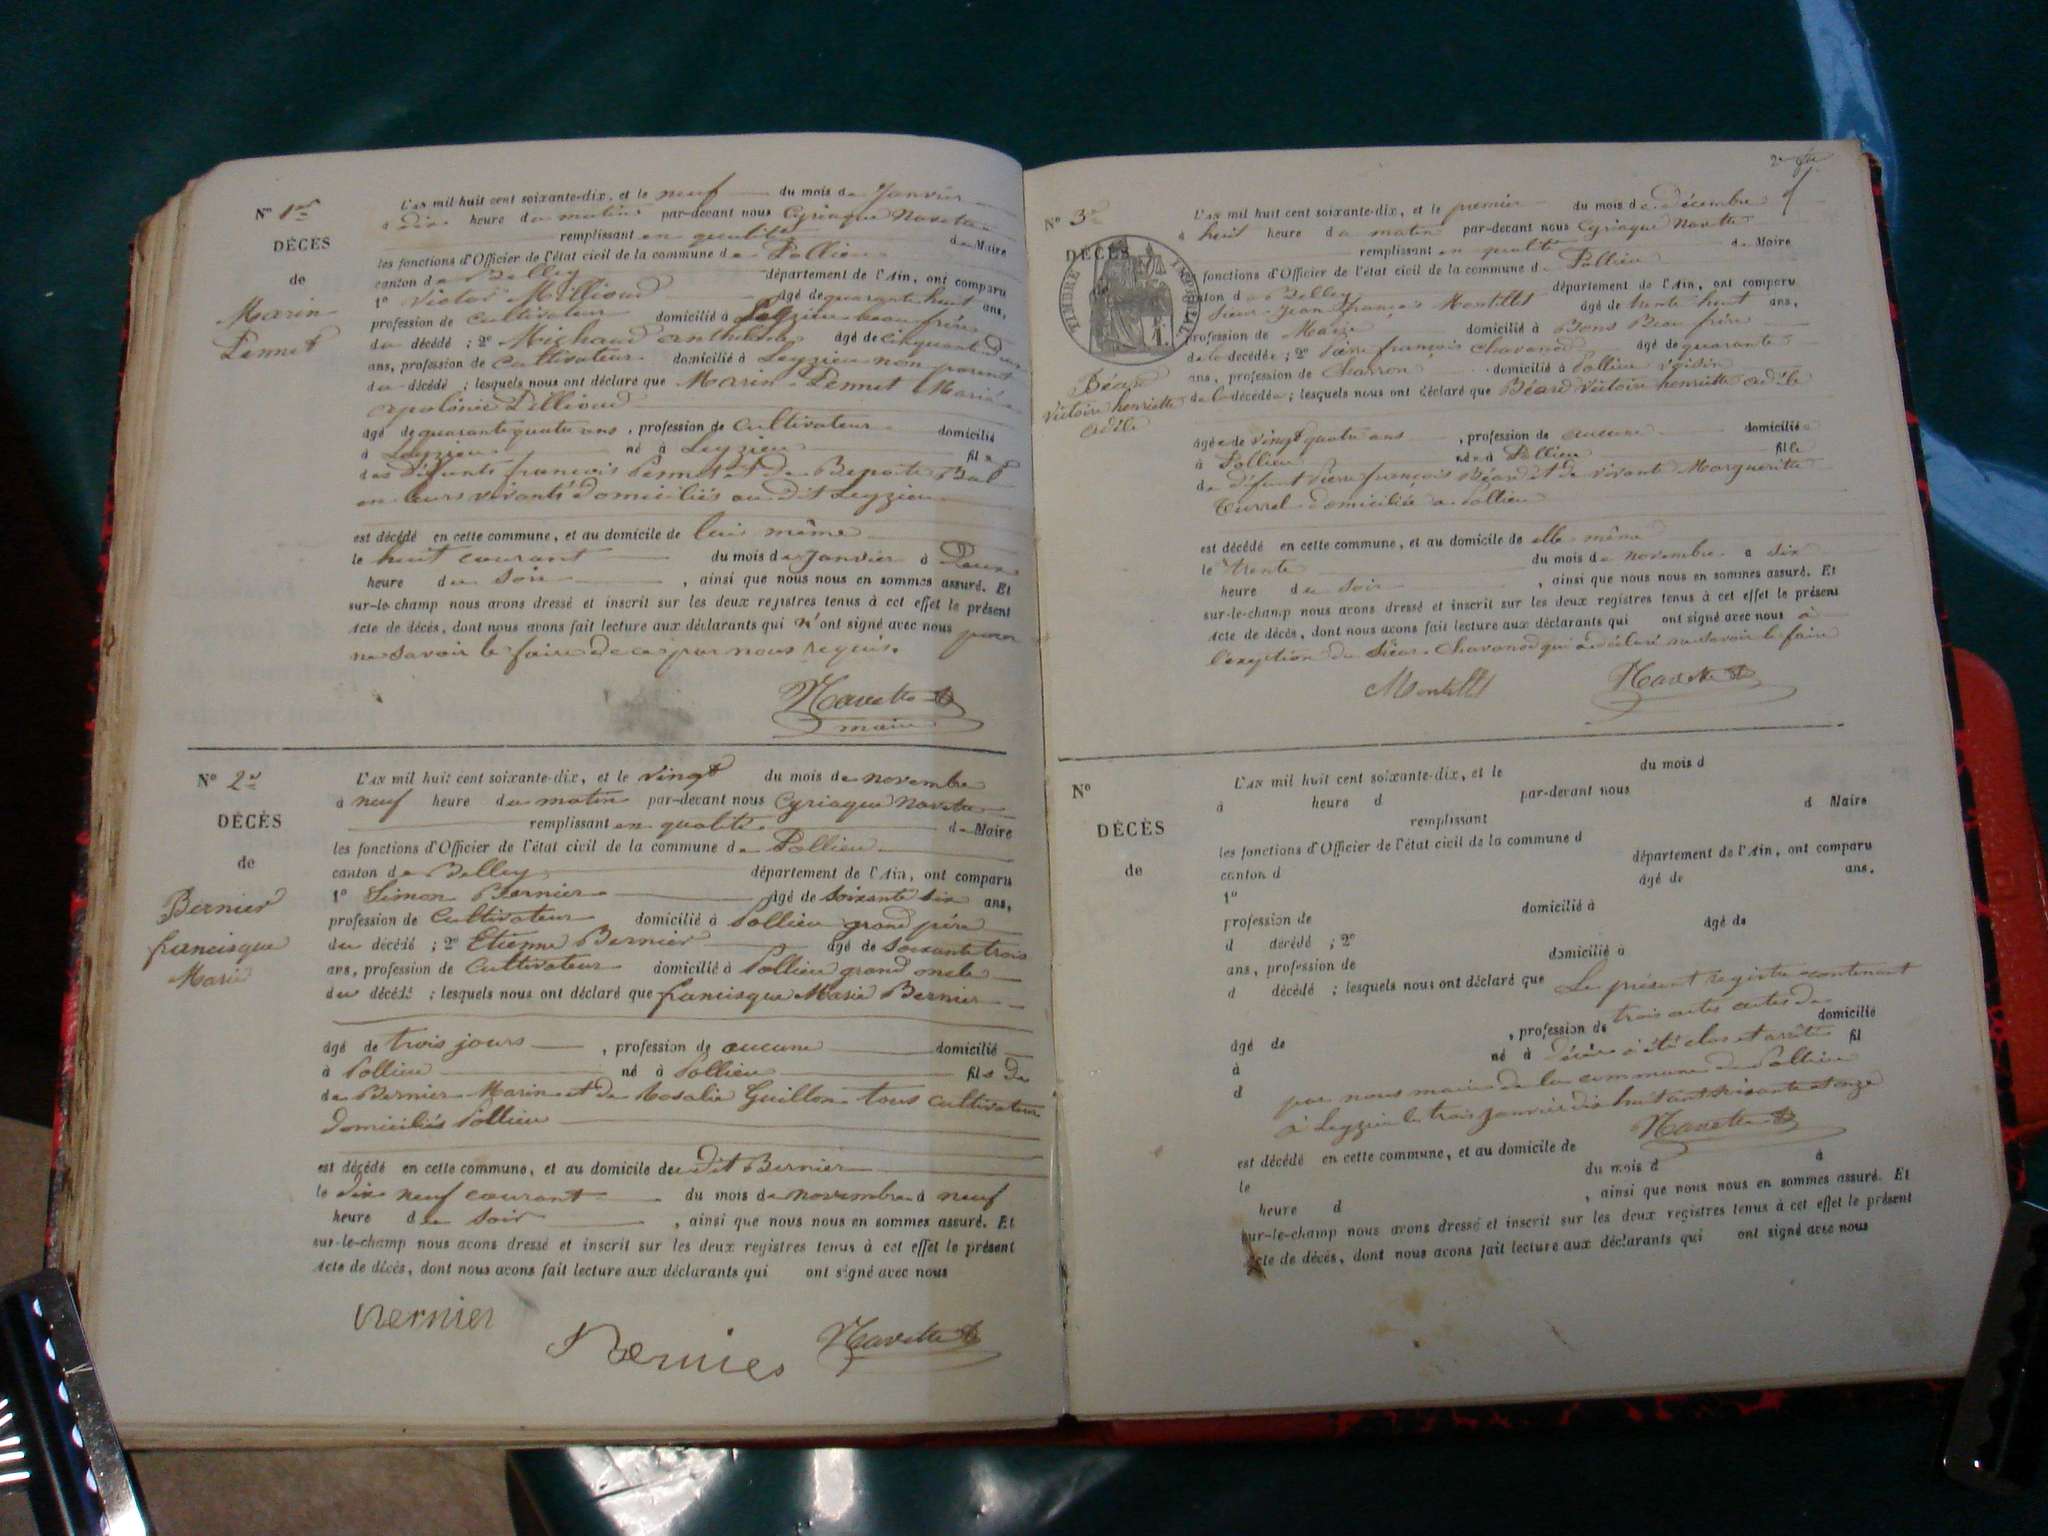 N° 1er
DÉCÈS
de
Marin
Pennet
L'AN mil huit cent soixante-dix, et le neuf du mois de Janvier
à dix heure du matin par-devant nous Cyriaque Navette
remplissant en qualité de Maire
les fonctions d'Officier de l'état civil de la commune de Pollieu
canton de Belley département de l'Ain, ont comparu
1° Victor Millioud âgé de quarante huit ans,
profession de Cultivateur domicilié à Leyzieu beau frère
du décédé ; 2° Michaud anthelme âgé de cinquante deux
ans, profession de Cultivateur domicilié à Leyzieu non parent
du décédé ; lesquels nous ont déclaré que Marin Pennet Marié a
apolonie
âgé de quarante quatre ans, profession de Cultivateur domicilié
à Leyzieu né à Leyzieu fils
des défunts françois Pennet et de
en leurs vivants domiciliés au dit Leyzieu
est décédé en cette commune, et au domicile de lui même
le huit courant du mois de Janvier à Deux
heure du soir, ainsi que nous nous en sommes assuré. Et
sur-le-champ nous avons dressé et inscrit sur les deux registres tenus à cet effet le présent
acte de décès, dont nous avons fait lecture aux déclarants qui n'ont signé avec nous pour
ne savoir le faire de ce par nous requis.
Navette
maire
N° 2e
DÉCÈS
de
Bernier
francisque
Marie
L'AN mil huit cent soixante-dix, et le vingt du mois de novembre
à neuf heure du matin par-devant nous Cyriaque Navette
remplissant en qualité de Maire
les fonctions d'Officier de l'état civil de la commune de Pollieu
canton de Belley département de l'Ain, ont comparu
1° Simon Bernier âgé de soixante six ans,
profession de Cultivateur domicilié à Pollieu grand père
du décédé ; 2° Etienne Bernier âgé de soixante trois
ans, profession de Cultivateur domicilié à Pollieu grand oncle
du décédé ; lesquels nous ont déclaré que francisque Marie Bernier
âgé de trois jours, profession de aucune domicilié
à Pollieu né à Pollieu fils de
de Bernier Marin et de Rosalie Guillon tous cultivateur
domiciliés Pollieu
est décédé en cette commune, et au domicile du dit Bernier
le dix neuf courant du mois de novembre à neuf
heure du soir, ainsi que nous nous en sommes assuré. Et
sur-le-champ nous avons dressé et inscrit sur les deux registres tenus à cet effet le présent
acte de décès, dont nous avons fait lecture aux déclarants qui ont signé avec nous
Bernier
Bernier Navette
2e
N° 3e
DÉCÈS
TIMBRE IMPÉRIAL
Béard
Victoire henriette
adèle
L'AN mil huit cent soixante-dix, et le premier du mois de décembre
à huit heure du matin par-devant nous Cyriaque Navette
remplissant en qualité de Maire
les fonctions d'Officier de l'état civil de la commune de Pollieu
canton de Belley département de l'Ain, ont comparu
Sieur Jean françois Montillet âgé de trente huit ans,
profession de Maire domicilié à Bons Beau frère
de la décédée ; 2° Pierre françois Chavanod âgé de quarante
ans, profession de Charron domicilié à Pollieu voisin
de la décédée ; lesquels nous ont déclaré que Béard Victoire henriette adèle
âgée de vingt quatre ans, profession de aucune domiciliée
à Pollieu née à Pollieu fille
de défunt Pierre françois Béard et de vivante Marguerite
Turrel domiciliée à Pollieu
est décédé en cette commune, et au domicile de elle même
le trente du mois de novembre a six
heure du soir, ainsi que nous nous en sommes assuré. Et
sur-le-champ nous avons dressé et inscrit sur les deux registres tenus à cet effet le présent
acte de décès, dont nous avons fait lecture aux déclarants qui ont signé avec nous à
l'exeption du Sieur Chavanod qui a déclaré ne savoir le faire
Montillet Navette
N°
DÉCÈS
de
L'AN mil huit cent soixante-dix, et le du mois d
à heure d par-devant nous
remplissant d Maire
les fonctions d'Officier de l'état civil de la commune d
canton d département de l'Ain, ont comparu
1° âgé de ans.
profession de domicilié à
d décédé ; 2° âgé de
ans, profession de domicilié à
d décédé ; lesquels nous ont déclaré que Le présent registre contenant
âgé de , profession de trois actes de domicilié
à né à décès a été clos et arrêté fil
d par nous maire de la commune de Pollieu
à Leyzieu le trois Janvier dix huit cent soixante et onze
Navette
est décédé en cette commune, et au domicile de
le du mois d à
heure d , ainsi que nous nous en sommes assuré. Et
sur-le-champ nous avons dressé et inscrit sur les deux registres tenus à cet effet le présent
acte de décès, dont nous avons fait lecture aux déclarants qui ont signé avec nous